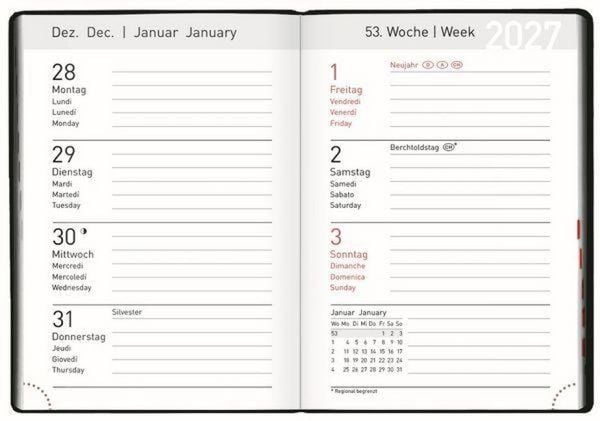 Dez. Dec. | Januar January
28
Montag
Lundi
Lunedí
Monday
29
Dienstag
Mardi
Martedí
Tuesday
30
Mittwoch
Mercredi
Mercoledí
Wednesday
31
Silvester
Donnerstag
Jeudi
Giovedí
Thursday
53. Woche | Week 2027
1
Neujahr D A CH
Freitag
Vendredi
Venerdí
Friday
2
Berchtoldstag CH*
Samstag
Samedi
Sabato
Saturday
3
Sonntag
Dimanche
Domenica
Sunday
Januar January
Wo Mo Di Mi Do Fr Sa So
53 1 2 3
1 4 5 6 7 8 9 10
2 11 12 13 14 15 16 17
3 18 19 20 21 22 23 24
4 25 26 27 28 29 30 31
* Regional begrenzt